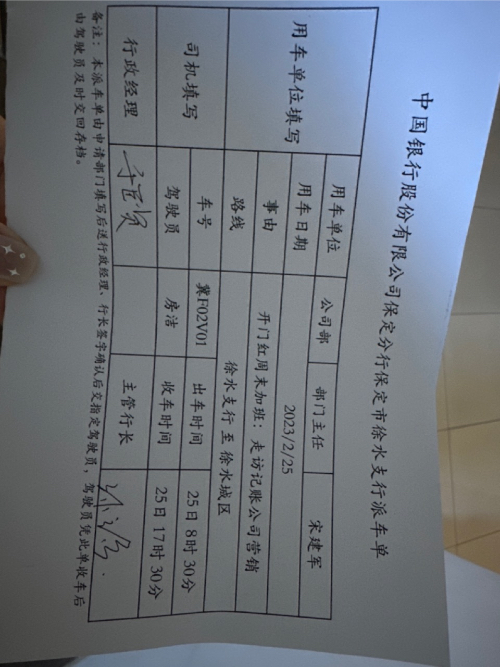 中国银行股份有限公司保定分行保定市徐水支行派车单
用车单位填写 用车单位 公司部 部门主任 宋建军
用车日期 2023/2/25
事由 开门红周末加班：走访记账公司营销
路线 徐水支行至徐水城区
司机填写 车号 冀F02V01 出车时间 25日8时30分
驾驶员 房洁 收车时间 25日17时30分
行政经理 主管行长
备注：本派车单由申请部门填写后送行政经理、行长签字确认后交指定驾驶员，驾驶员凭此单收车后
由驾驶员及时交回存档。